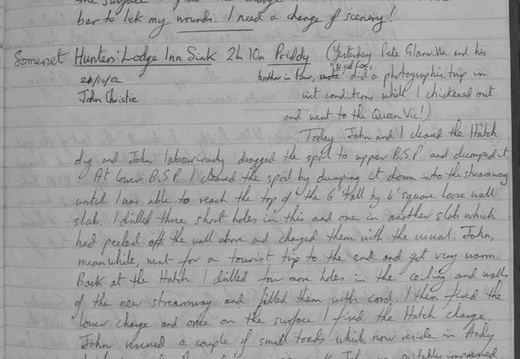 bar to lick my wounds. I need a change of scenery!
Somerset Hunters' Lodge Inn Sink 2h 10m Priddy (Yesterday Pete Glanville and his
21/10/02 brother in law, did a photographic trip in
John Christie wet conditions while I chickened out
and went to the Queen Vic!)
Today John and I cleared the Hatch
dig and John laboriously dragged the spoil to upper B.S.P. and dumped it.
At lower B.S.P. I cleared the spoil by dumping it down into the streamway
until I was able to reach the top of the 6' tall by 4' square loose wall
slab. I drilled three short holes in this and one in another slab which
had peeled off the wall above and charged them with the usual. John,
meanwhile, went for a tourist trip to the end and got very warm.
Back at the Hatch I drilled four more holes in the ceiling and walls
of the new streamway and filled them with cord. I then fired the
lower charge and once on the surface I fired the Hatch charge.
John rescued a couple of small toads which now reside in Andy